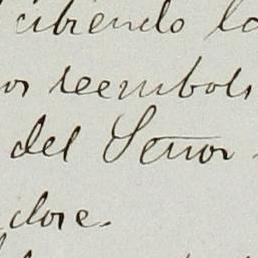 cibiendo la
os reembols
del Señor
dore.